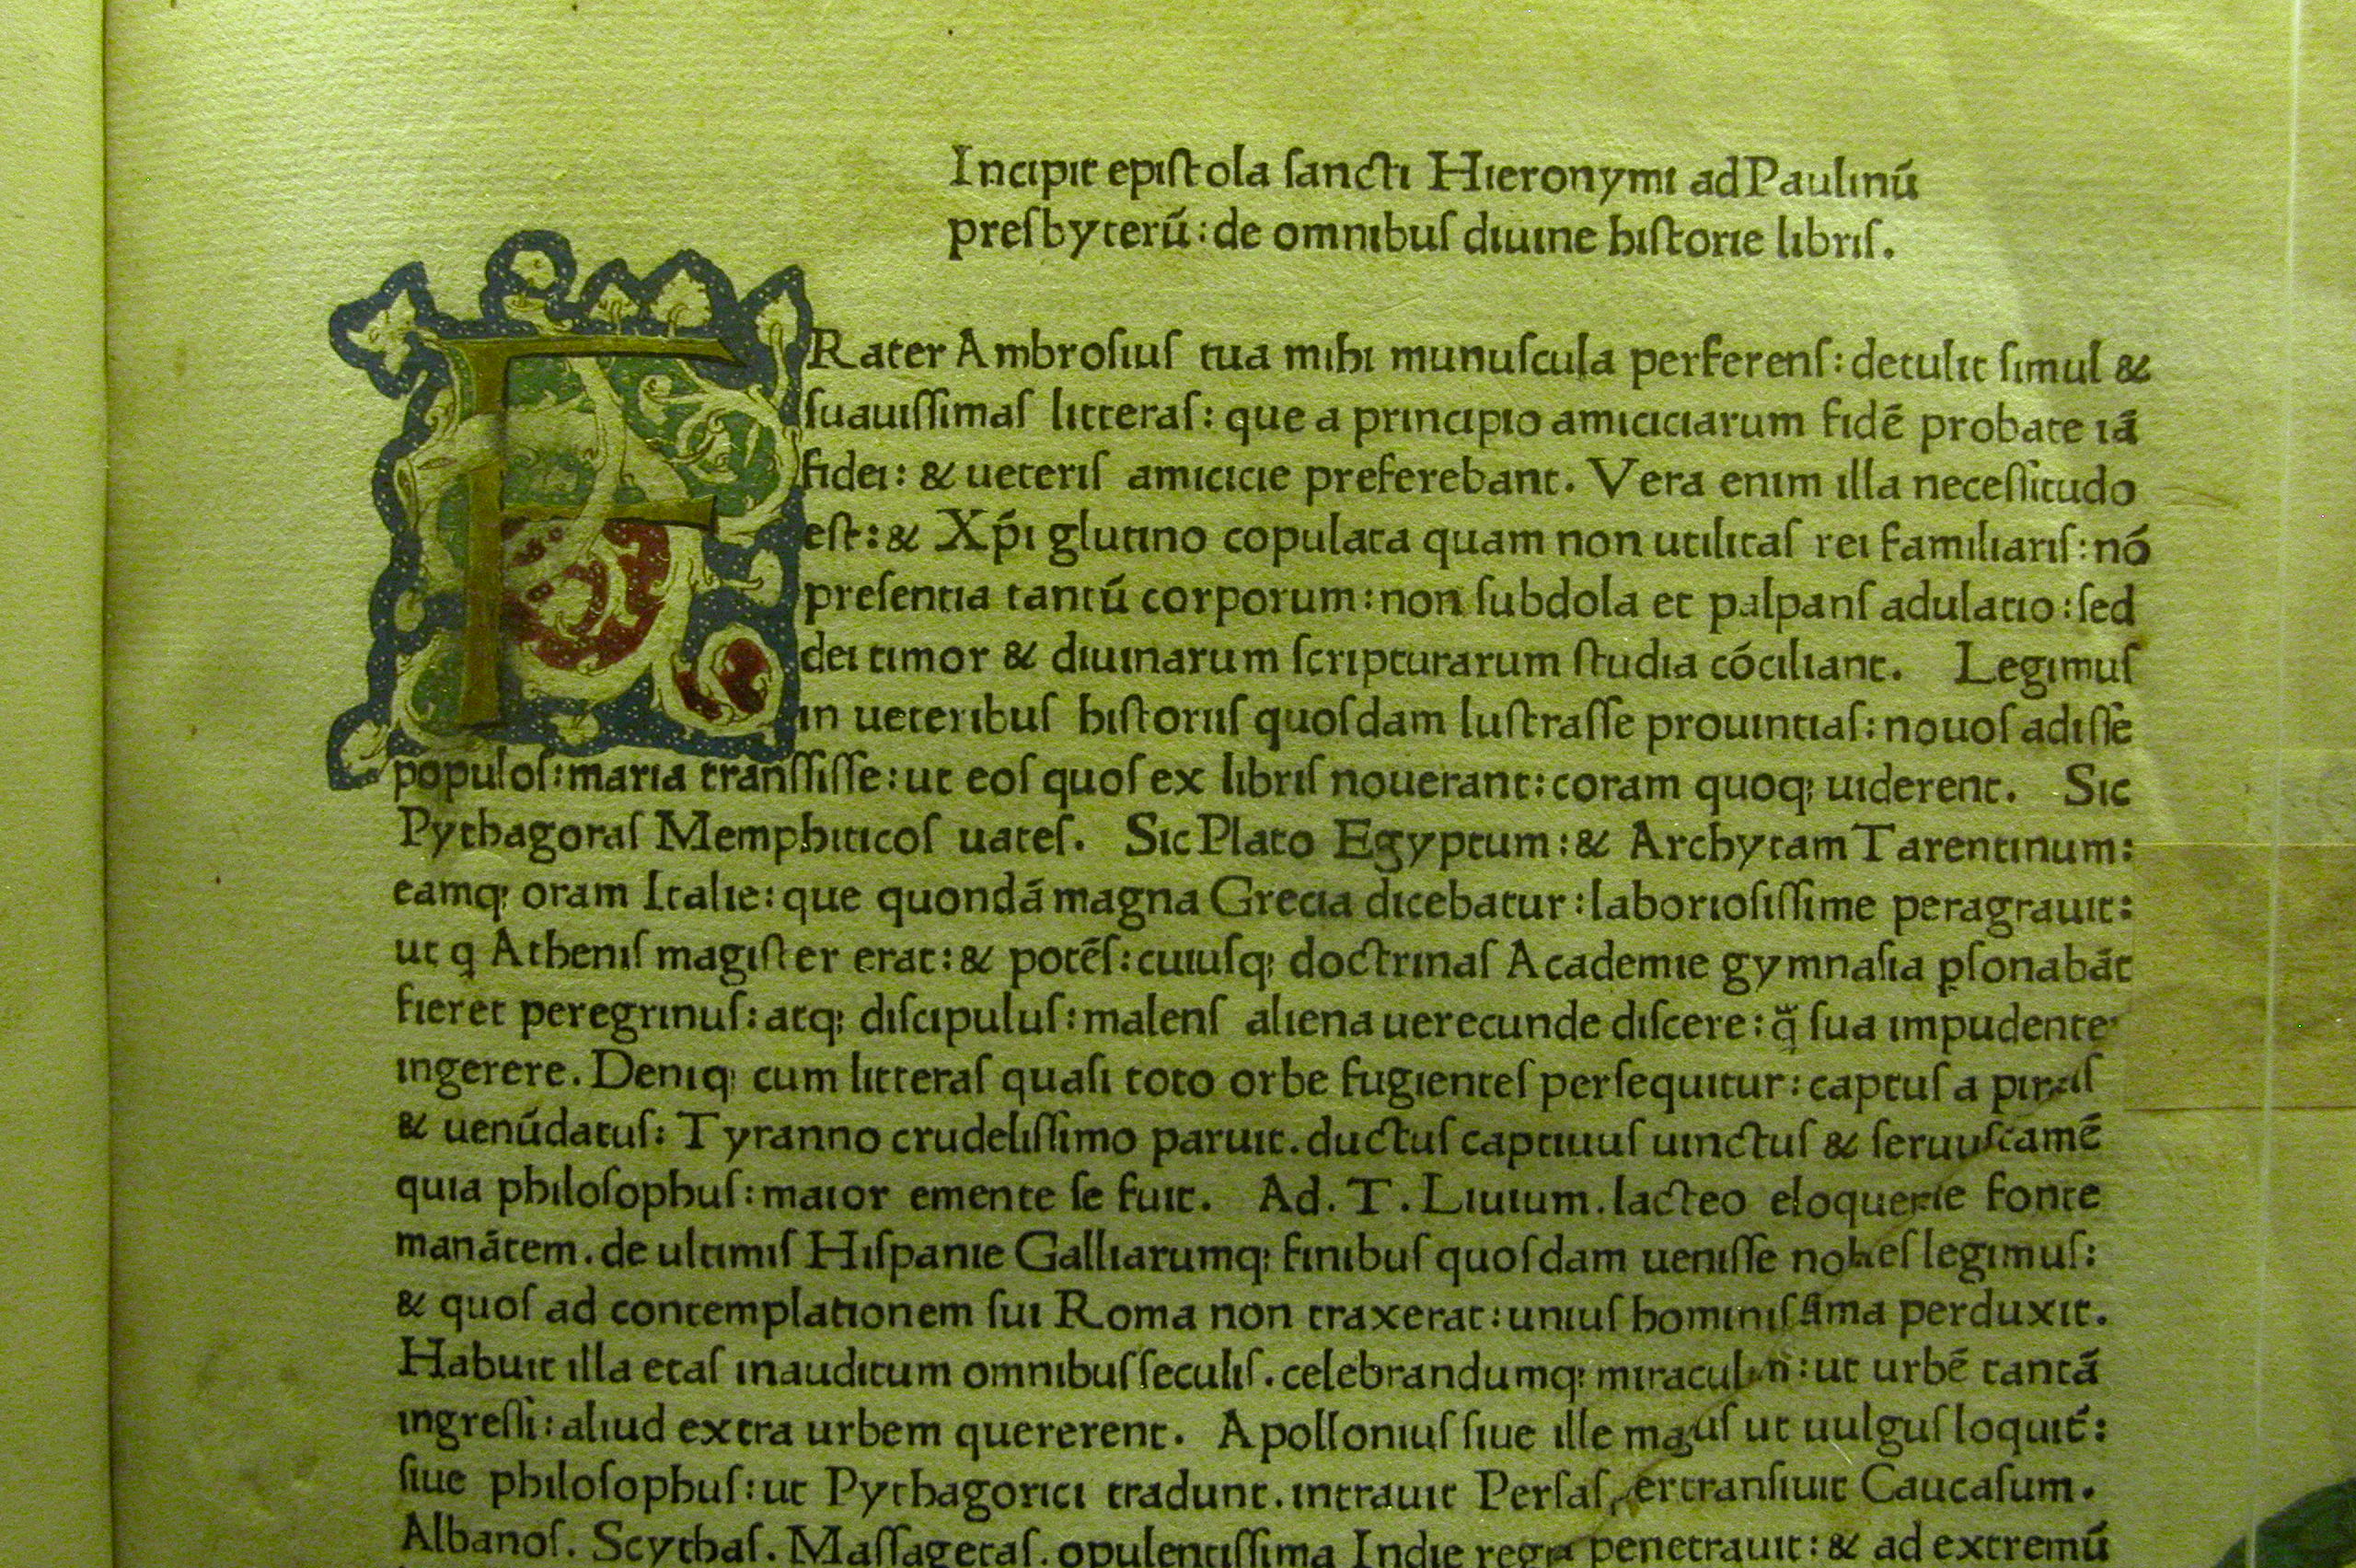 Incipit epiſtola ſancti Hieronymi ad Paulinū
preſbyterū: de omnibuſ diuine hiſtorie libriſ.
FRater Ambroſiuſ tua mihi munuſcula perferenſ: detulit ſimul &
ſuauiſſimaſ litteraſ: que a principio amiciciarum fidē probate iā
fidei: & ueteriſ amicicie preferebant. Vera enim illa neceſſitudo
eſt: & Xp̄i glutino copulata quam non utilitaſ rei familiariſ: nō
preſentia tantū corporum: non ſubdola et palpanſ adulatio: ſed
dei timor & diuinarum ſcripturarum ſtudia cōciliant. Legimuſ
in ueteribuſ hiſtoriiſ quoſdam luſtraſſe prouintiaſ: nouoſ adiſſe
populoſ: maria tranſſiſſe: ut eoſ quoſ ex libriſ nouerant: coram quoq; uiderent. Sic
Pythagoraſ Memphiticoſ uateſ. Sic Plato Egyptum: & Archytam Tarentinum:
eamq; oram Italie: que quondā magna Grecia dicebatur: laborioſiſſime peragrauit:
ut q Atheniſ magiſter erat: & potēſ: cuiuſq; doctrinaſ Academie gymnaſia ꝑſonabāt
fieret peregrinuſ: atq; diſcipuluſ: malenſ aliena uerecunde diſcere: q̃ ſua impudente
ingerere. Deniq; cum litteraſ quaſi toto orbe fugienteſ perſequitur: captuſ a
& uenūdatuſ: Tyranno crudeliſſimo paruit. ductuſ captiuuſ uinctuſ & ſeruuſ tamē
quia philoſophuſ: maior emente ſe fuit. Ad. T. Liuium. lacteo eloquentie fonte
manātem. de ultimiſ Hiſpanie Galliarumq; finibuſ quoſdam ueniſſe nobileſ legimuſ:
& quoſ ad contemplationem ſui Roma non traxerat: uniuſ hominiſ fama perduxit.
Habuit illa etaſ inauditum omnibuſ ſeculiſ. celebrandumq; miraculum: ut urbē tantā
ingreſſi: aliud extra urbem quererent. Apolloniuſ ſiue ille maguſ ut uulguſ loquit̄:
ſiue philoſophuſ: ut Pythagorici tradunt. intrauit Perſaſ, pertranſiuit Caucaſum.
Albanoſ. Scythaſ. Maſſagetaſ. opulentiſſima Indie regna penetrauit: & ad extremū